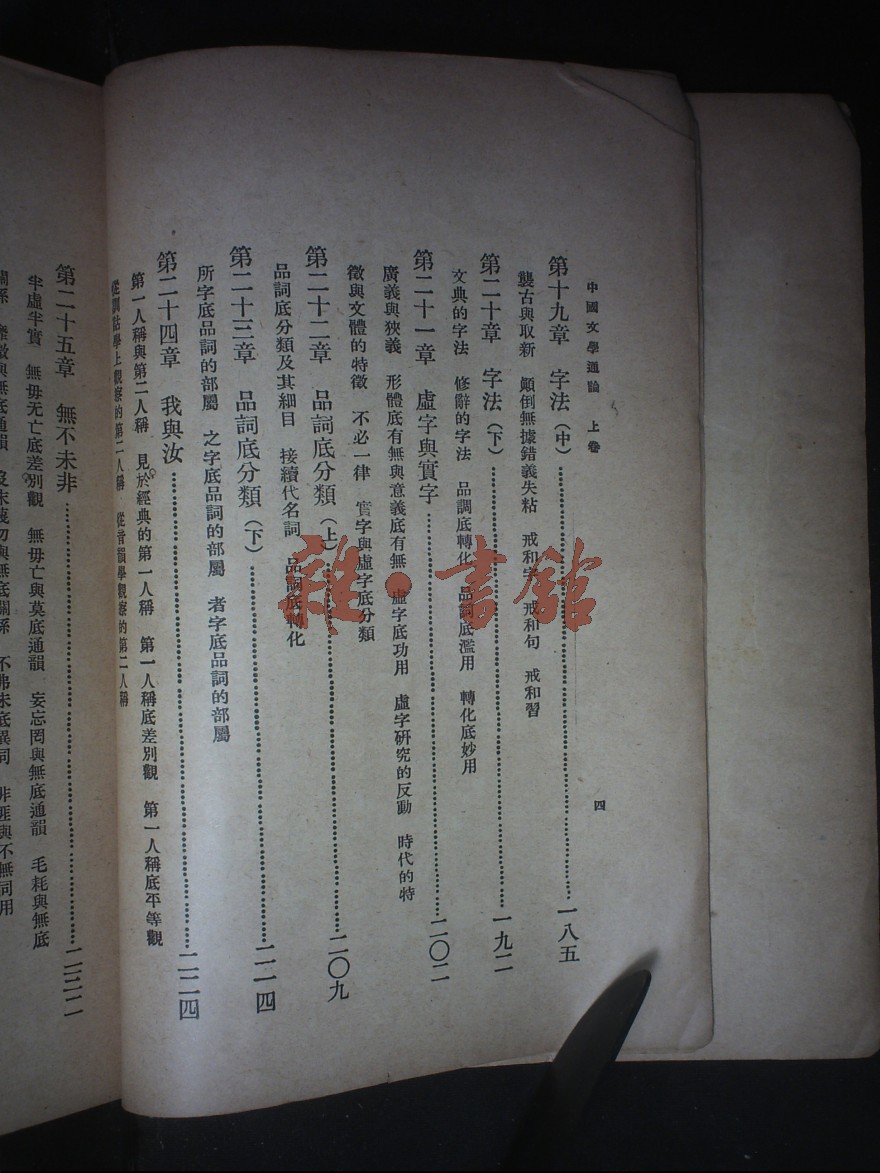 中國文學通論 上卷
四
第十九章 字法(中)……一八五
襲古與取新 顚倒無據錯義失粘 戒和字 戒和句 戒和習
第二十章 字法(下)……一九二
文典的字法 修辭的字法 品調底轉化 品詞底濫用 轉化底妙用
第二十一章 虛字與實字……二〇二
廣義與狹義 形體底有無與意義底有無 虛字底功用 虛字研究的反動 時代的特
徵與文體的特徵 不必一律 實字與虛字底分類
第二十二章 品詞底分類(上)……二〇九
品詞底分類及其細目 接續代名詞 品詞底轉化
第二十三章 品詞底分類(下)……二一四
所字底品詞的部屬 之字底品詞的部屬 者字底品詞的部屬
第二十四章 我與汝……二二四
第一人稱與第二人稱 見於經典的第一人稱 第一人稱底差別觀 第一人稱底平等觀
從訓詁學上觀察的第二人稱 從音韻學觀察的第二人稱
第二十五章 無不未非……二三二
半虛半實 無毋无亡底差別觀 無毋亡與莫底通韻 妄忘罔與無底通韻 毛耗與無底
關係 與無底通韻 與無底關係 不弗未底異同 非匪與不無同用
雜·書館